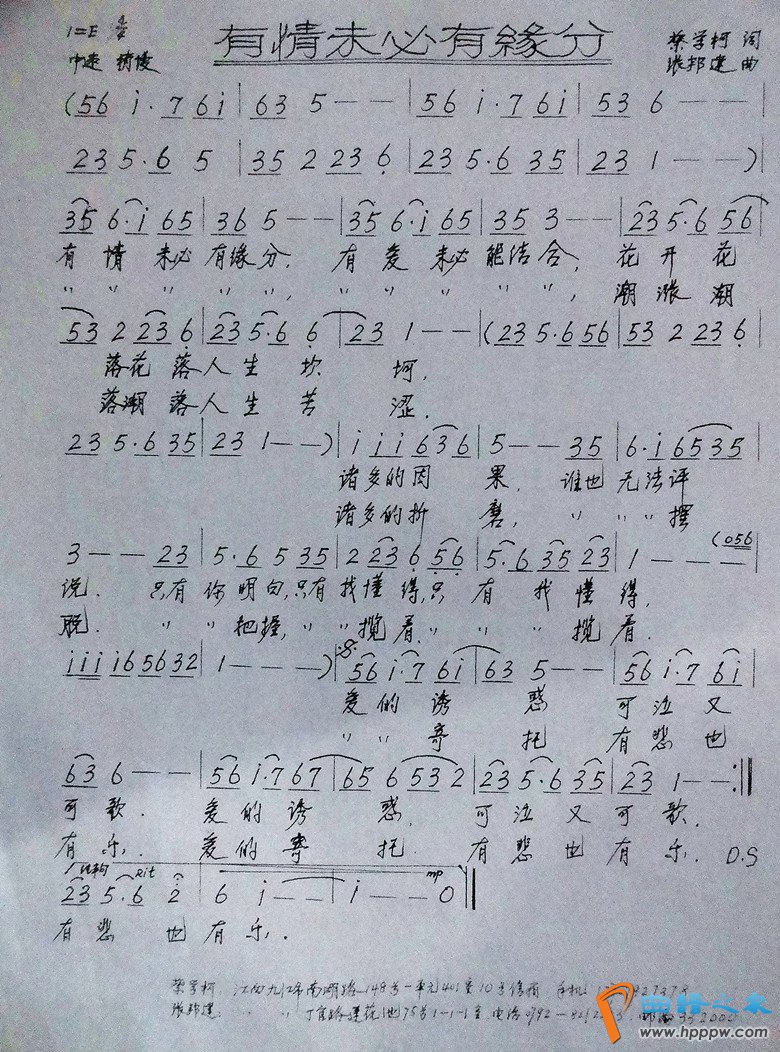 1=E 4/4
有情未必有緣分
蔡学柯 词
中速
张邦建 曲
(56 i·7 6i | 63 5 — — | 56 i·7 6i | 53 6 — — |
23 5·6 5 | 35 2 23 6 | 23 5·6 35 | 23 1 — —)
35 6·i 65 | 36 5 — — | 35 6·i 65 | 35 3 — — | 23 5·6 56 |
有情未必有缘分.有爱未必能结合,花开花
〃〃〃〃〃,〃〃〃〃〃,潮涨潮
53 2 23 6 | 23 5·6 6 | 23 1 — — | (23 5·6 56 | 53 2 23 6 |
落花落人生坎坷,
落潮落人生苦涩.
23 5·6 35 | 23 1 — —) | i i i 636 | 5 — — 35 | 6·i 6535 |
诸多的因果,谁也无法评
诸多的折磨,〃〃〃摆
3 — — 23 | 5·6 5 35 | 2 23 6 56 | 5·6 35 23 | 1 — — — (056
说.只有你明白,只有我懂得,只有我懂得,
脱.〃〃把握,〃〃揽着,〃〃〃揽着.
iiii6 5632 | 1 — — —) | 56 i·7 6i | 63 5 — — | 56 i·7 6i |
爱的诱惑可泣又
〃〃寄托有悲也
63 6 — — | 56 i·7 67 | 65 6 53 2 | 23 5·6 35 | 23 1 — — :||
可歌.爱的诱惑,可泣又可歌.
有乐.爱的寄托.有悲也有乐. D.S
结构 Rit mp
23 5·6 2 | 6 i — — | i — — 0 ||
有悲也有乐.
蔡学柯. 江西九江市南湖路148号一单元401室10号信箱 手机:
张邦建. 〃 〃 丁官路莲花池75号1-1-1室.电话0792-
www.hpppw.com